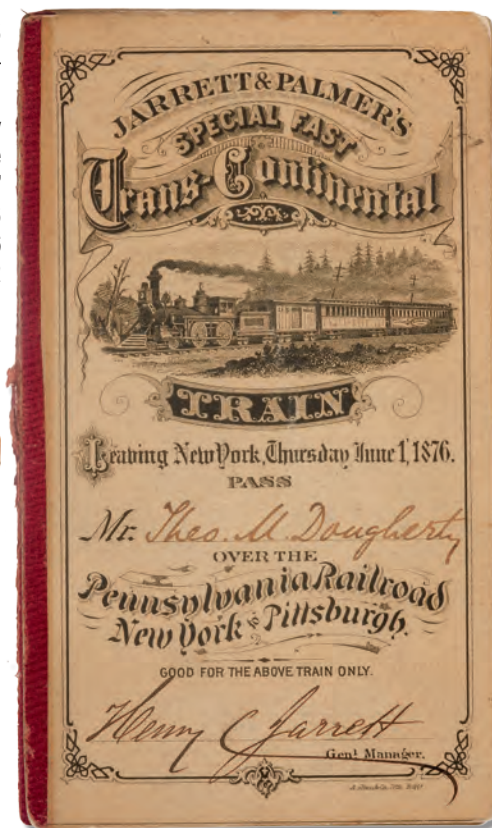 JARRETT & PALMER'S
SPECIAL FAST
Trans-Continental
TRAIN
Leaving New York, Thursday June 1, 1876.
PASS
Mr. Theo. M. Dougherty
OVER THE
Pennsylvania Railroad
New York to Pittsburgh.
GOOD FOR THE ABOVE TRAIN ONLY.
Henry C Jarrett
Genl Manager.